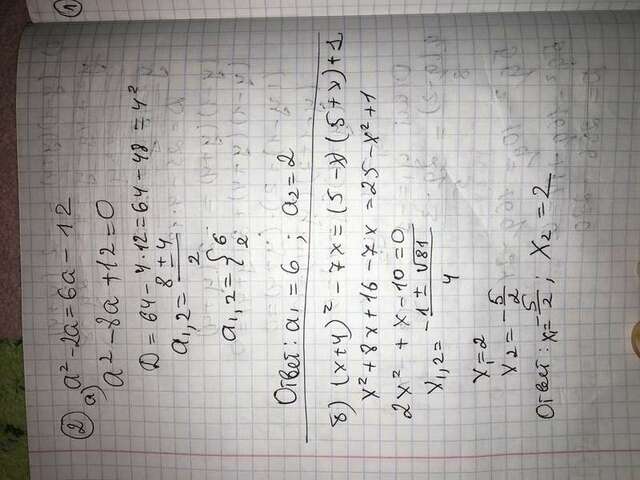 ② a² - 2a = 6a - 12
а)
a² - 8a + 12 = 0
D = 64 - 4·12 = 64 - 48 = 4²
a₁,₂ = (8 ± 4)/2
a₁,₂ = { 6
2
Ответ: a₁ = 6 ; a₂ = 2
б) (x+4)² - 7x = (5 - x)(5 + x) + 1
x² + 8x + 16 - 7x = 25 - x² + 1
2x² + x - 10 = 0
x₁,₂ = (-1 ± √81)/4
x₁ = 2
x₂ = -5/2
Ответ: x₁ = -5/2 ; x₂ = 2
①